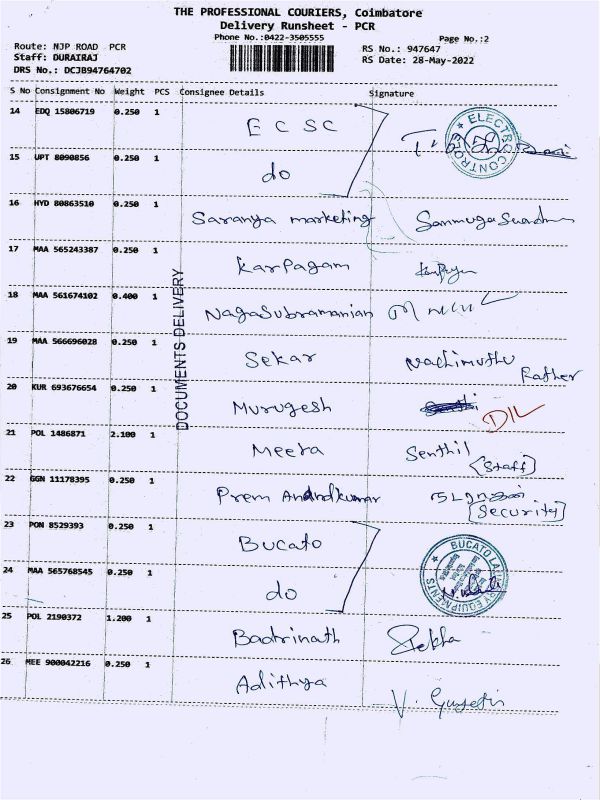 THE PROFESSIONAL COURIERS, Coimbatore
Delivery Runsheet - PCR
Phone No.:0422-3505555 Page No.:2
Route: NJP ROAD PCR RS No.: 947647
Staff: DURAIRAJ RS Date: 28-May-2022
DRS No.: DCJB94764702
S No Consignment No Weight PCS Consignee Details Signature
14 EDQ 15806719 0.250 1 E C S C
ELECTRO CONTROLS
15 UPT 8090856 0.250 1 do
16 HYD 80863510 0.250 1 Saranya marketing
17 MAA 565243387 0.250 1 Karpagam
18 MAA 561674102 0.400 1 NagaSubramanian
DOCUMENTS DELIVERY
19 MAA 566696028 0.250 1 Sekar Nachimuthu
Father
20 KUR 693676654 0.250 1 Murugesh DIL
21 POL 1486871 2.100 1 Meera Senthil
(Staff)
22 GGN 11178395 0.250 1 Prem Anandkumar
(Security)
23 PON 8529393 0.250 1 Bucato
BUCATO LAUNDRY EQUIPMENTS
24 MAA 565768545 0.250 1 do
25 POL 2190372 1.200 1 Badrinath Rekha
26 MEE 900042216 0.250 1 Adithya